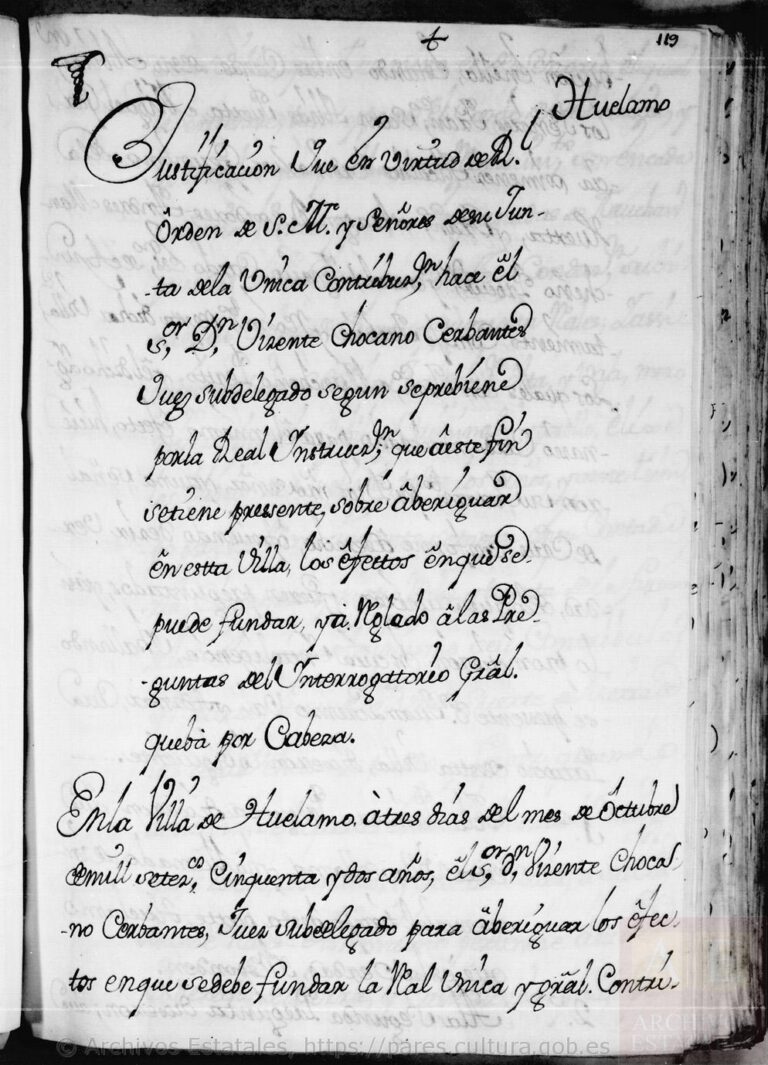 119
Huelamo
Justificacion Que en virtud de Rl.
Orden de S. M. y Señores de su Jun-
-ta de la Unica Contribuz,on hace el
S,or D,n Vizente Chocano Cerbantes
Juez subdelegado segun se prebiene
por la Real Ynstruzz,on que â este fin
se tiene pressente, sobre âberiguar
ên estta Villa, los êfecttos ên que se
puede fundar, y a Rglado â las Pre-
-guntas del Ynterrogattorio Gral.
que bà por Cabeza.
En la Villa de Huelamo, à tres dias del mes de Octubre
de mill setez,cos Cinquenta y dos años, êl s,or D,n Vizente Choca-
-no Cerbantes, Juez subdelegado para âberiguar los êfec-
tos en que se debe fundar la Ral Unica y gral. Contri-
© Archivos Estatales, https://pares.cultura.gob.es
ARCHIVOS
ESTATALES